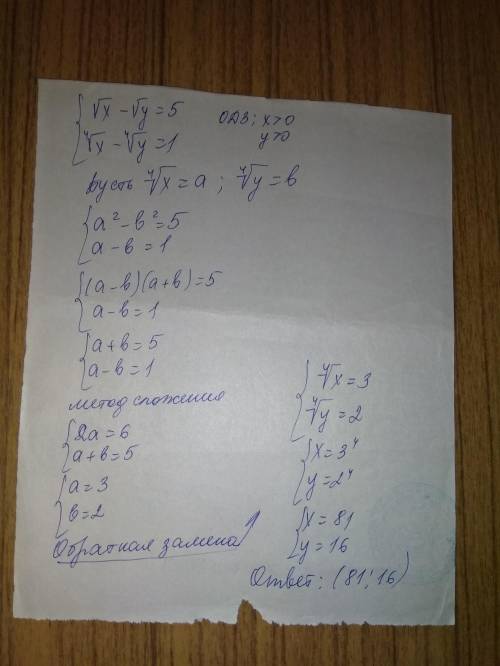 { √x - √y = 5
{ ⁴√x - ⁴√y = 1
ОДЗ: x>0
y>0
Пусть ⁴√x = a ; ⁴√y = b
{ a² - b² = 5
{ a - b = 1
{ (a - b)(a + b) = 5
{ a - b = 1
{ a + b = 5
{ a - b = 1
метод сложения
{ 2a = 6
{ a + b = 5
{ a = 3
{ b = 2
Обратная замена
{ ⁴√x = 3
{ ⁴√y = 2
{ x = 3⁴
{ y = 2⁴
{ x = 81
{ y = 16
Ответ: (81; 16)